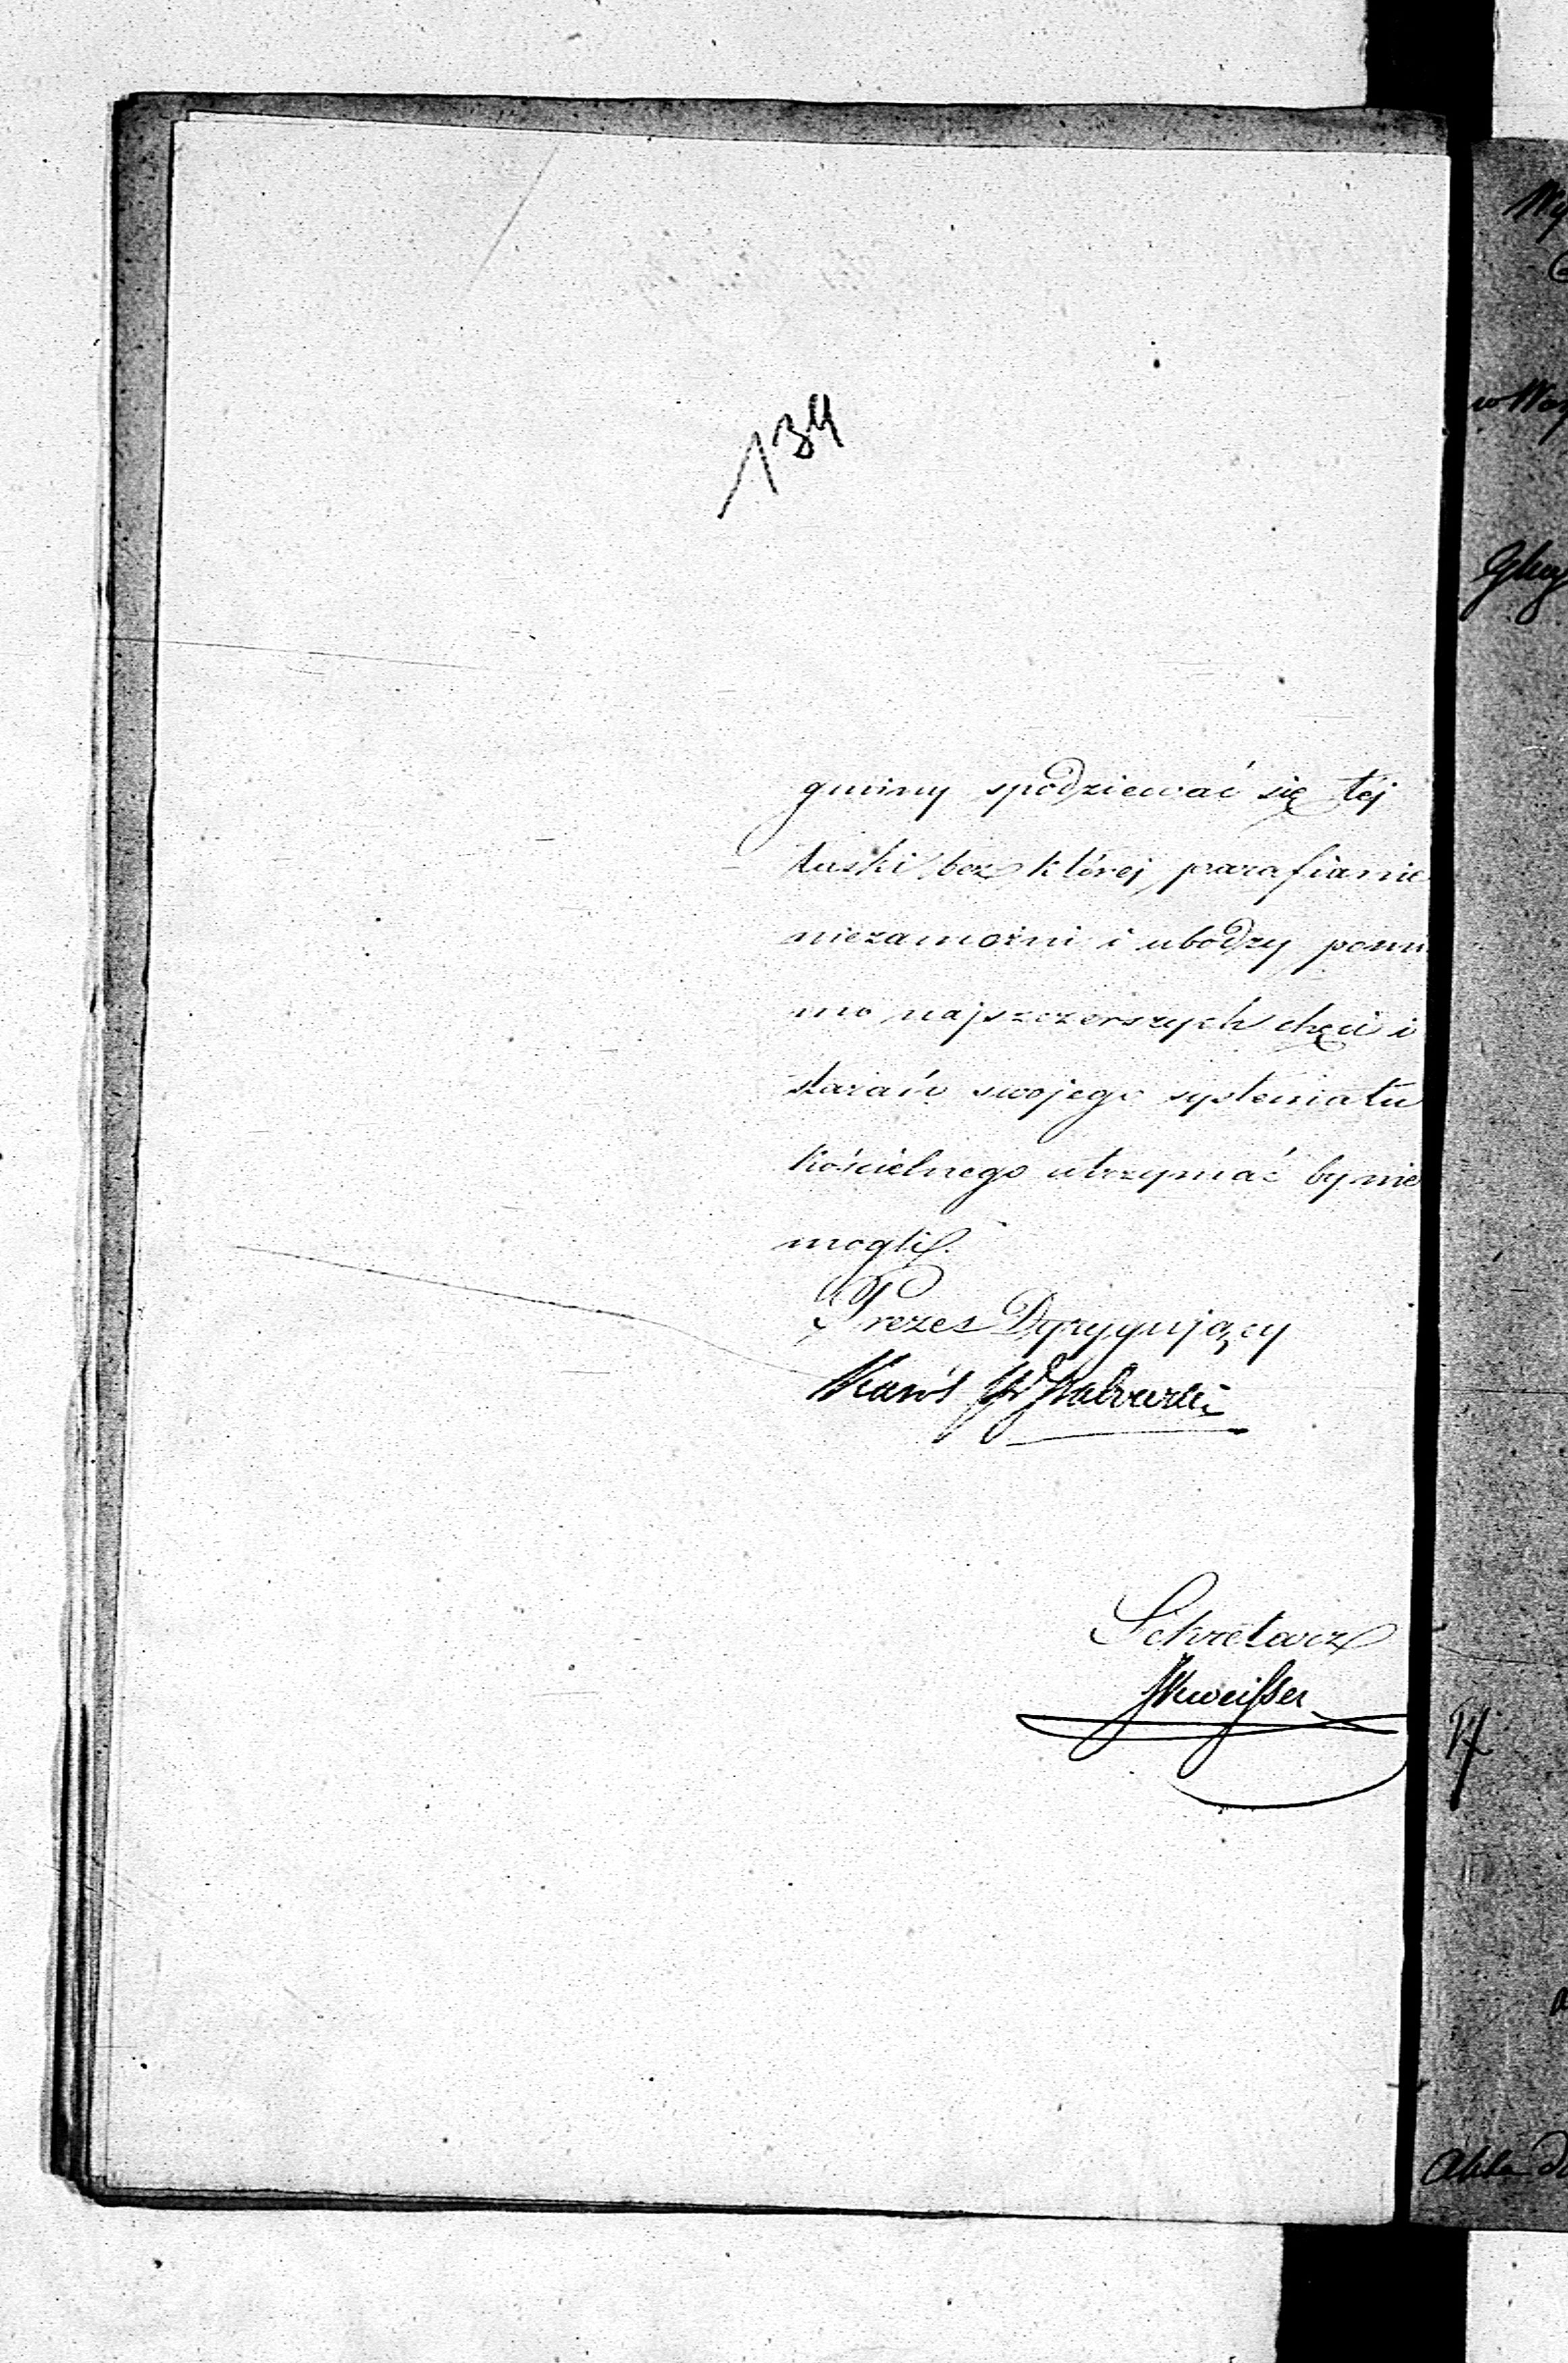 134
gminy spodziewać się téj
łaski bez której parafianie
niezamożni i ubodzy pomi
mo najszczerszych chęci i
starań swojego systematu
kościelnego utrzymać by nie
mogli.
Prezes Dyrygujący
Karól
Sekretarz